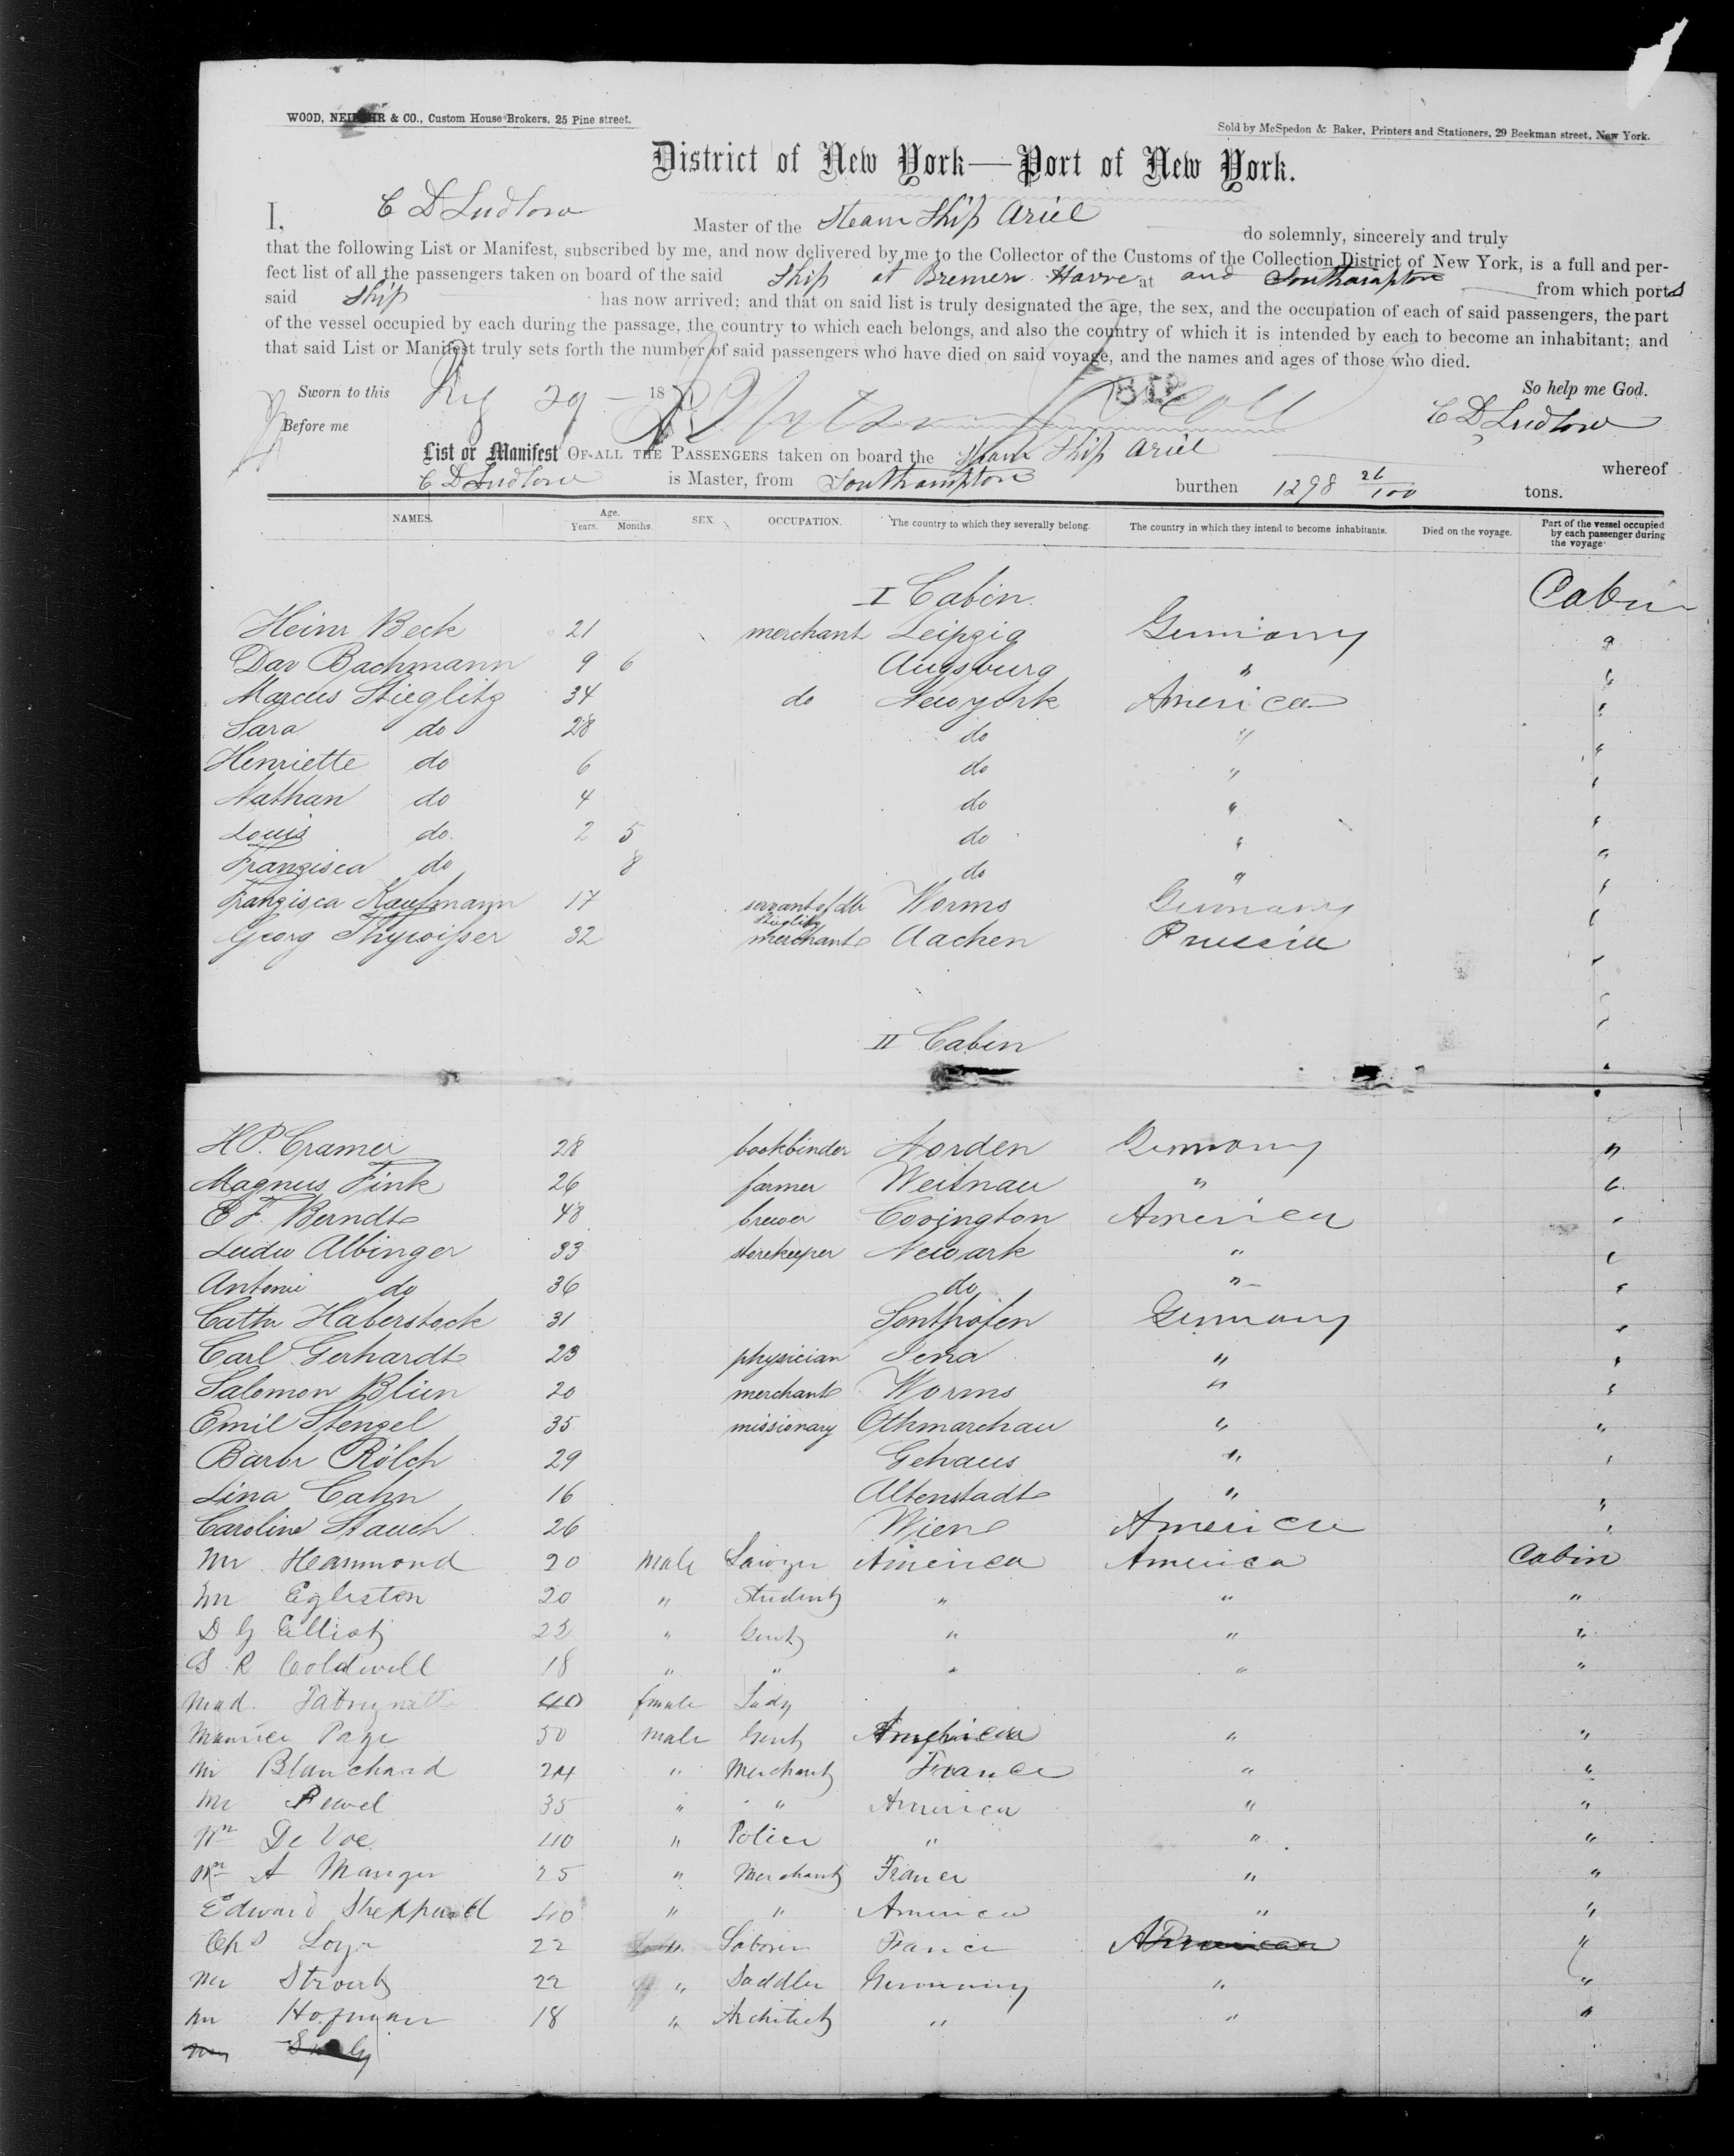 WOOD, NEIBUHR & CO., Custom House Brokers, 25 Pine street.
Sold by McSpedon & Baker, Printers and Stationers, 29 Beekman street, New York.
District of New York—Port of New York.
I, C D Ludlow Master of the Steam Ship Ariel do solemnly, sincerely and truly
that the following List or Manifest, subscribed by me, and now delivered by me to the Collector of the Customs of the Collection District of New York, is a full and per-
fect list of all the passengers taken on board of the said Ship at Bremen Havre at and Southampton from which ports
said Ship has now arrived; and that on said list is truly designated the age, the sex, and the occupation of each of said passengers, the part
of the vessel occupied by each during the passage, the country to which each belongs, and also the country of which it is intended by each to become an inhabitant; and
that said List or Manifest truly sets forth the number of said passengers who have died on said voyage, and the names and ages of those who died.
Sworn to this 29 18 So help me God.
Before me C D Ludlow
List or Manifest OF ALL THE PASSENGERS taken on board the Steam Ship Ariel whereof
C D Ludlow is Master, from Southampton burthen 1298 26/100 tons.
NAMES. Age. Years. Months. SEX. OCCUPATION. The country to which they severally belong. The country in which they intend to become inhabitants. Died on the voyage. Part of the vessel occupied by each passenger during the voyage
I Cabin. Cabin
Heinr Beck 21 merchant Leipzig Germany "
Dav Bachmann 9 6 Augsburg " "
Marcus Stieglitz 34 do Newyork America "
Sara do 28 do " "
Henriette do 6 do " "
Nathan do 4 do " "
Louis do. 2 5 do " "
Franzisca do 8 do " "
Franzisca Kaufmann 17 servant of Stieglitz Worms Germany "
Georg Thywisser 32 merchant Aachen Prussia "
II Cabin
H P. Cramer 28 bookbinder Norden Germany "
Magnus Fink 26 farmer Weitnau " "
E F. Berndt 48 brewer Covington America "
Ludw Albinger 33 storekeeper Newark " "
Antonie do 36 do " "
Cathr Haberstock 31 Sonthofen Germany "
Carl Gerhardt 23 physician Jena " "
Salomon Blün 20 merchant Worms " "
Emil Stengel 35 missionary Othmarchau " "
Barbr Rölch 29 Gehaus " "
Lina Cahn 16 Altenstadt " "
Caroline Stauch 26 Wien America "
Mr Hammond 20 Male Lawyer America America Cabin
Mr Egleston 20 " Student " " "
D G Elliot 23 " Gent " " "
S R Coldwell 18 " " " " "
Mad. 40 female Lady
Maurice Page 50 Male Gent America " "
Mr Blanchard 24 " Merchant France " "
Mr 35 " " America " "
Wm De Voe 40 " Police " " "
Wm A Manger 25 " Merchant France " "
Edward Sheppard 40 " " America " "
Chs 22 " France American "
Mr 22 " Saddler Germany " "
Mr Hofman 18 " Architect " " "